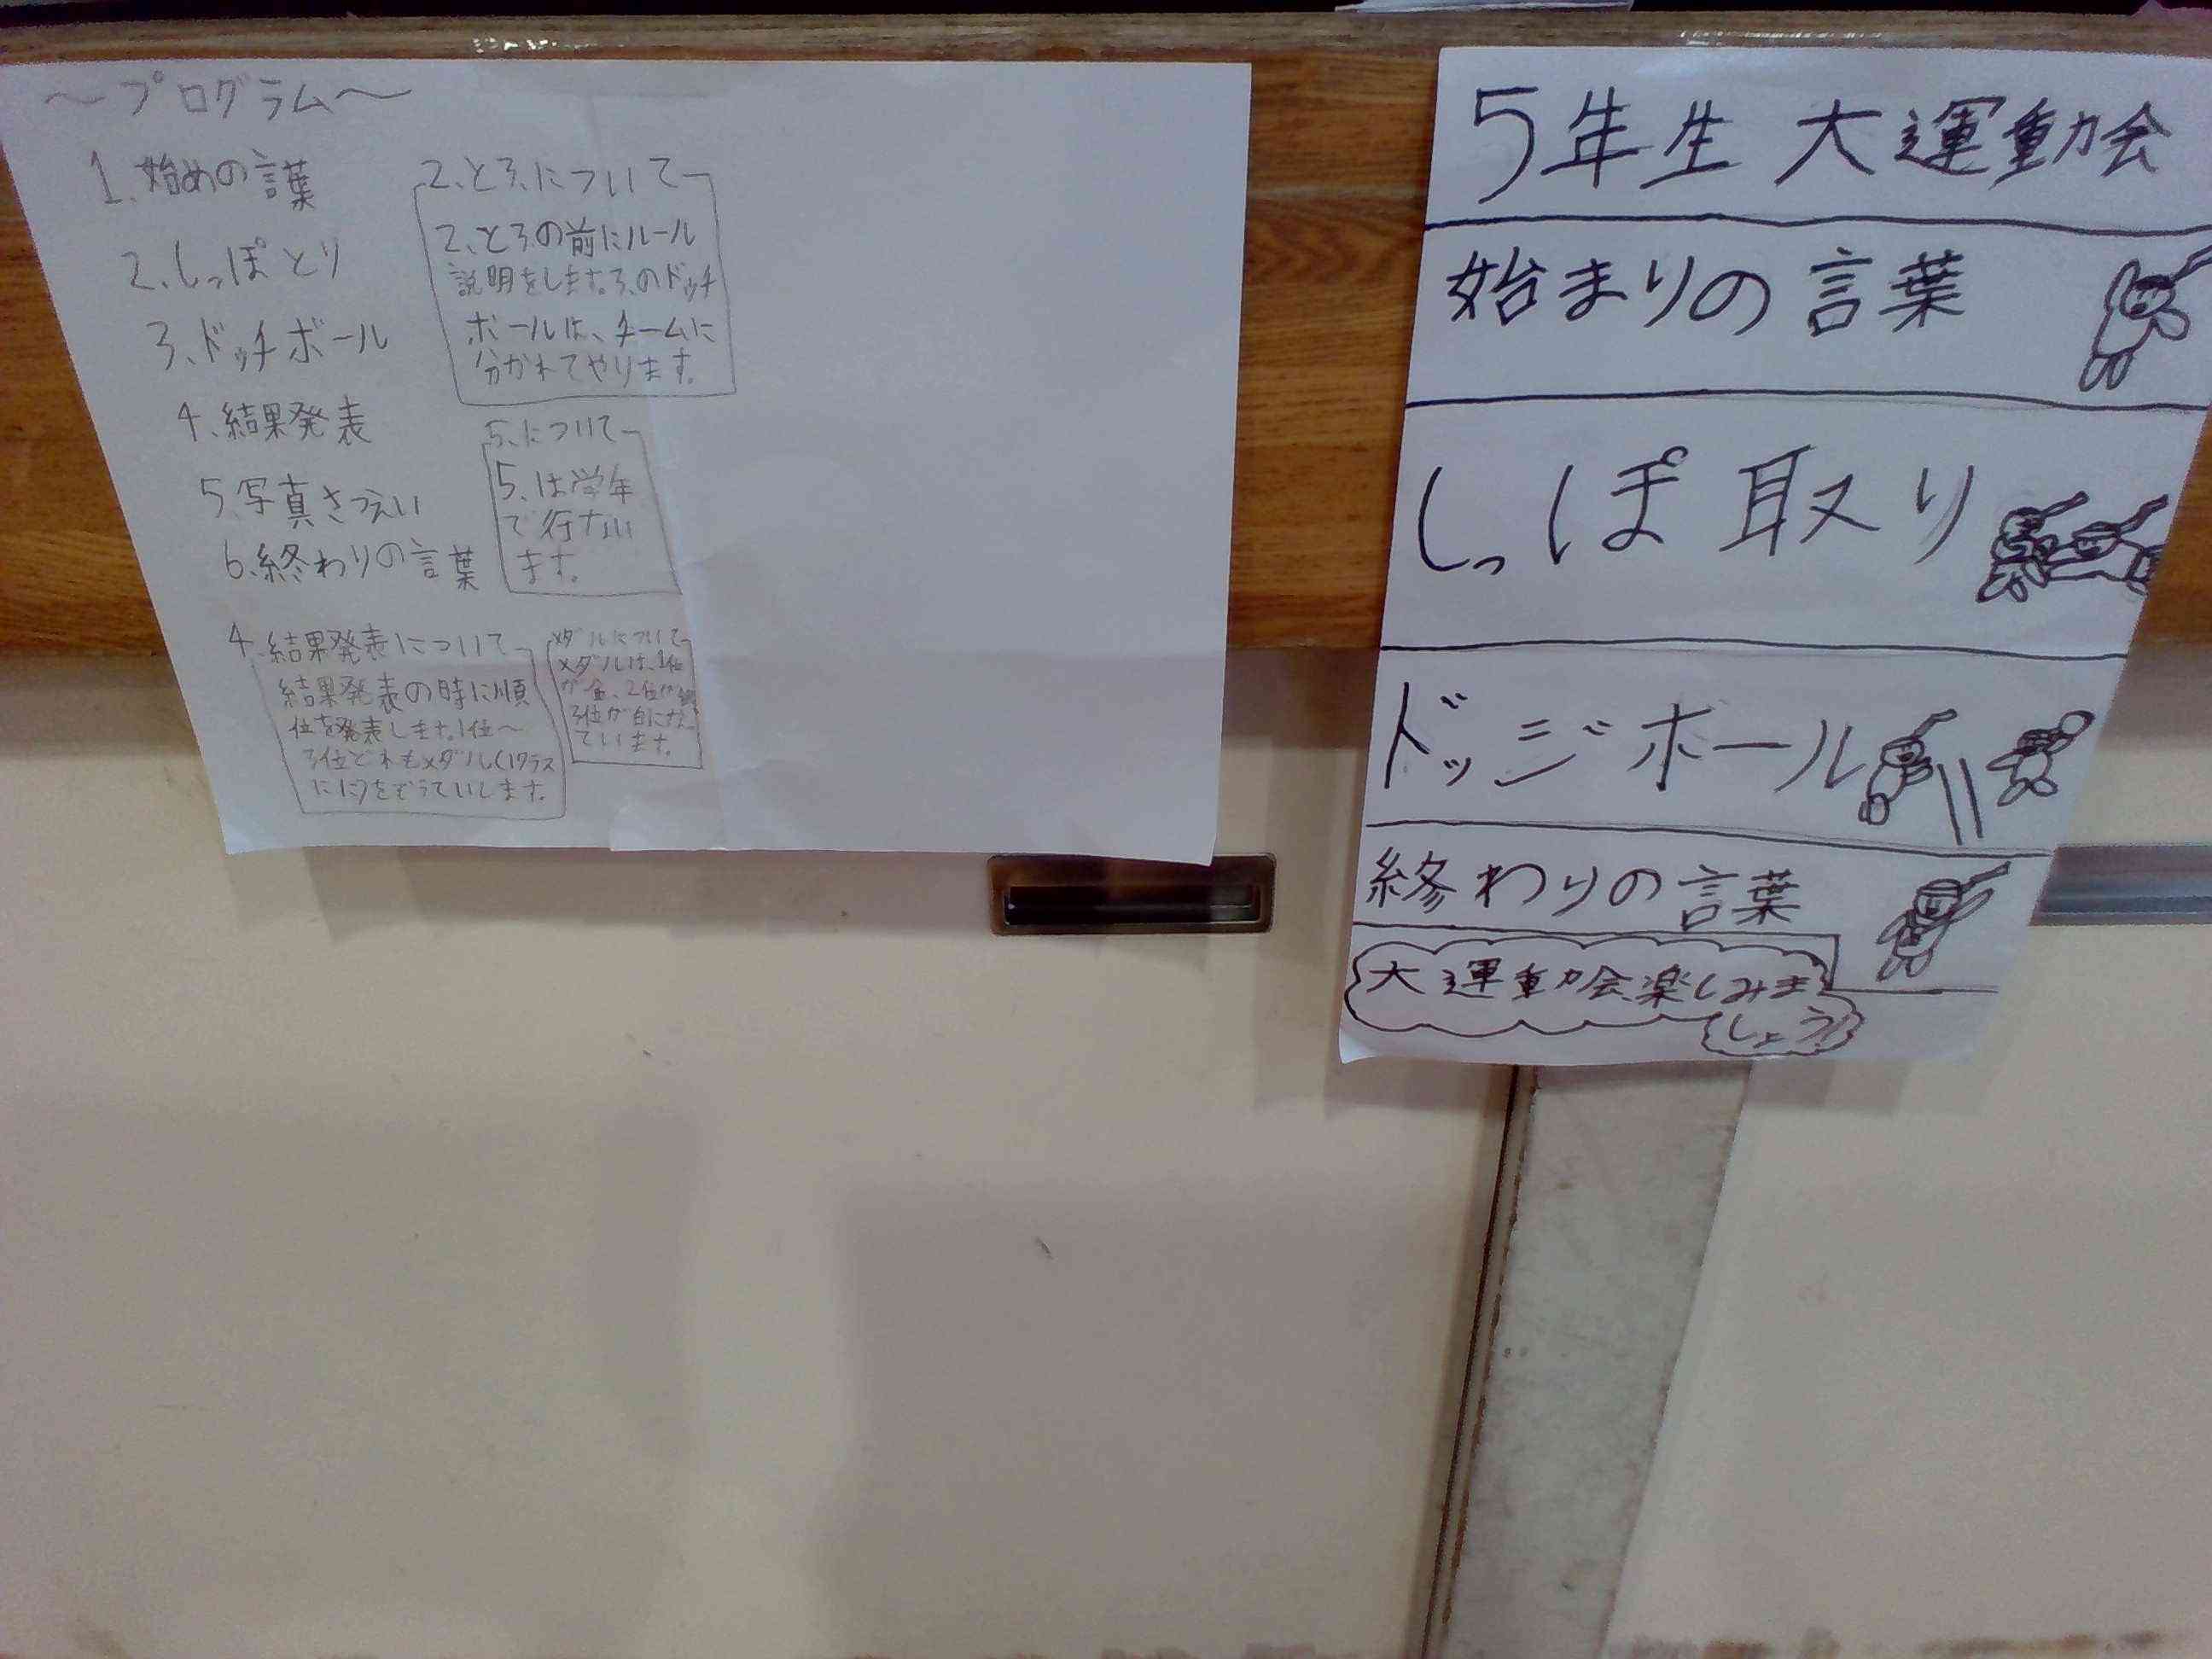 〜プログラム〜
1、始めの言葉
2、しっぽとり
3、ドッチボール
4、結果発表
5、写真さつえい
6、終わりの言葉
2、と3、について
2、と3、の前にルール
説明をします。3、のドッチ
ボールは、チームに
分かれてやります。
5、について
5、は学年
で行ない
ます。
4、結果発表について
結果発表の時に順
位を発表します。1位〜
3位どれもメダル(1クラス
に1コ)をぞうていします。
メダルについて
メダルは、1位
が金、2位が銀
3位が白になっ
ています。
5年生 大運動会
始まりの言葉
しっぽ取り
ドッジボール
終わりの言葉
大運動会楽しみま
しょう!